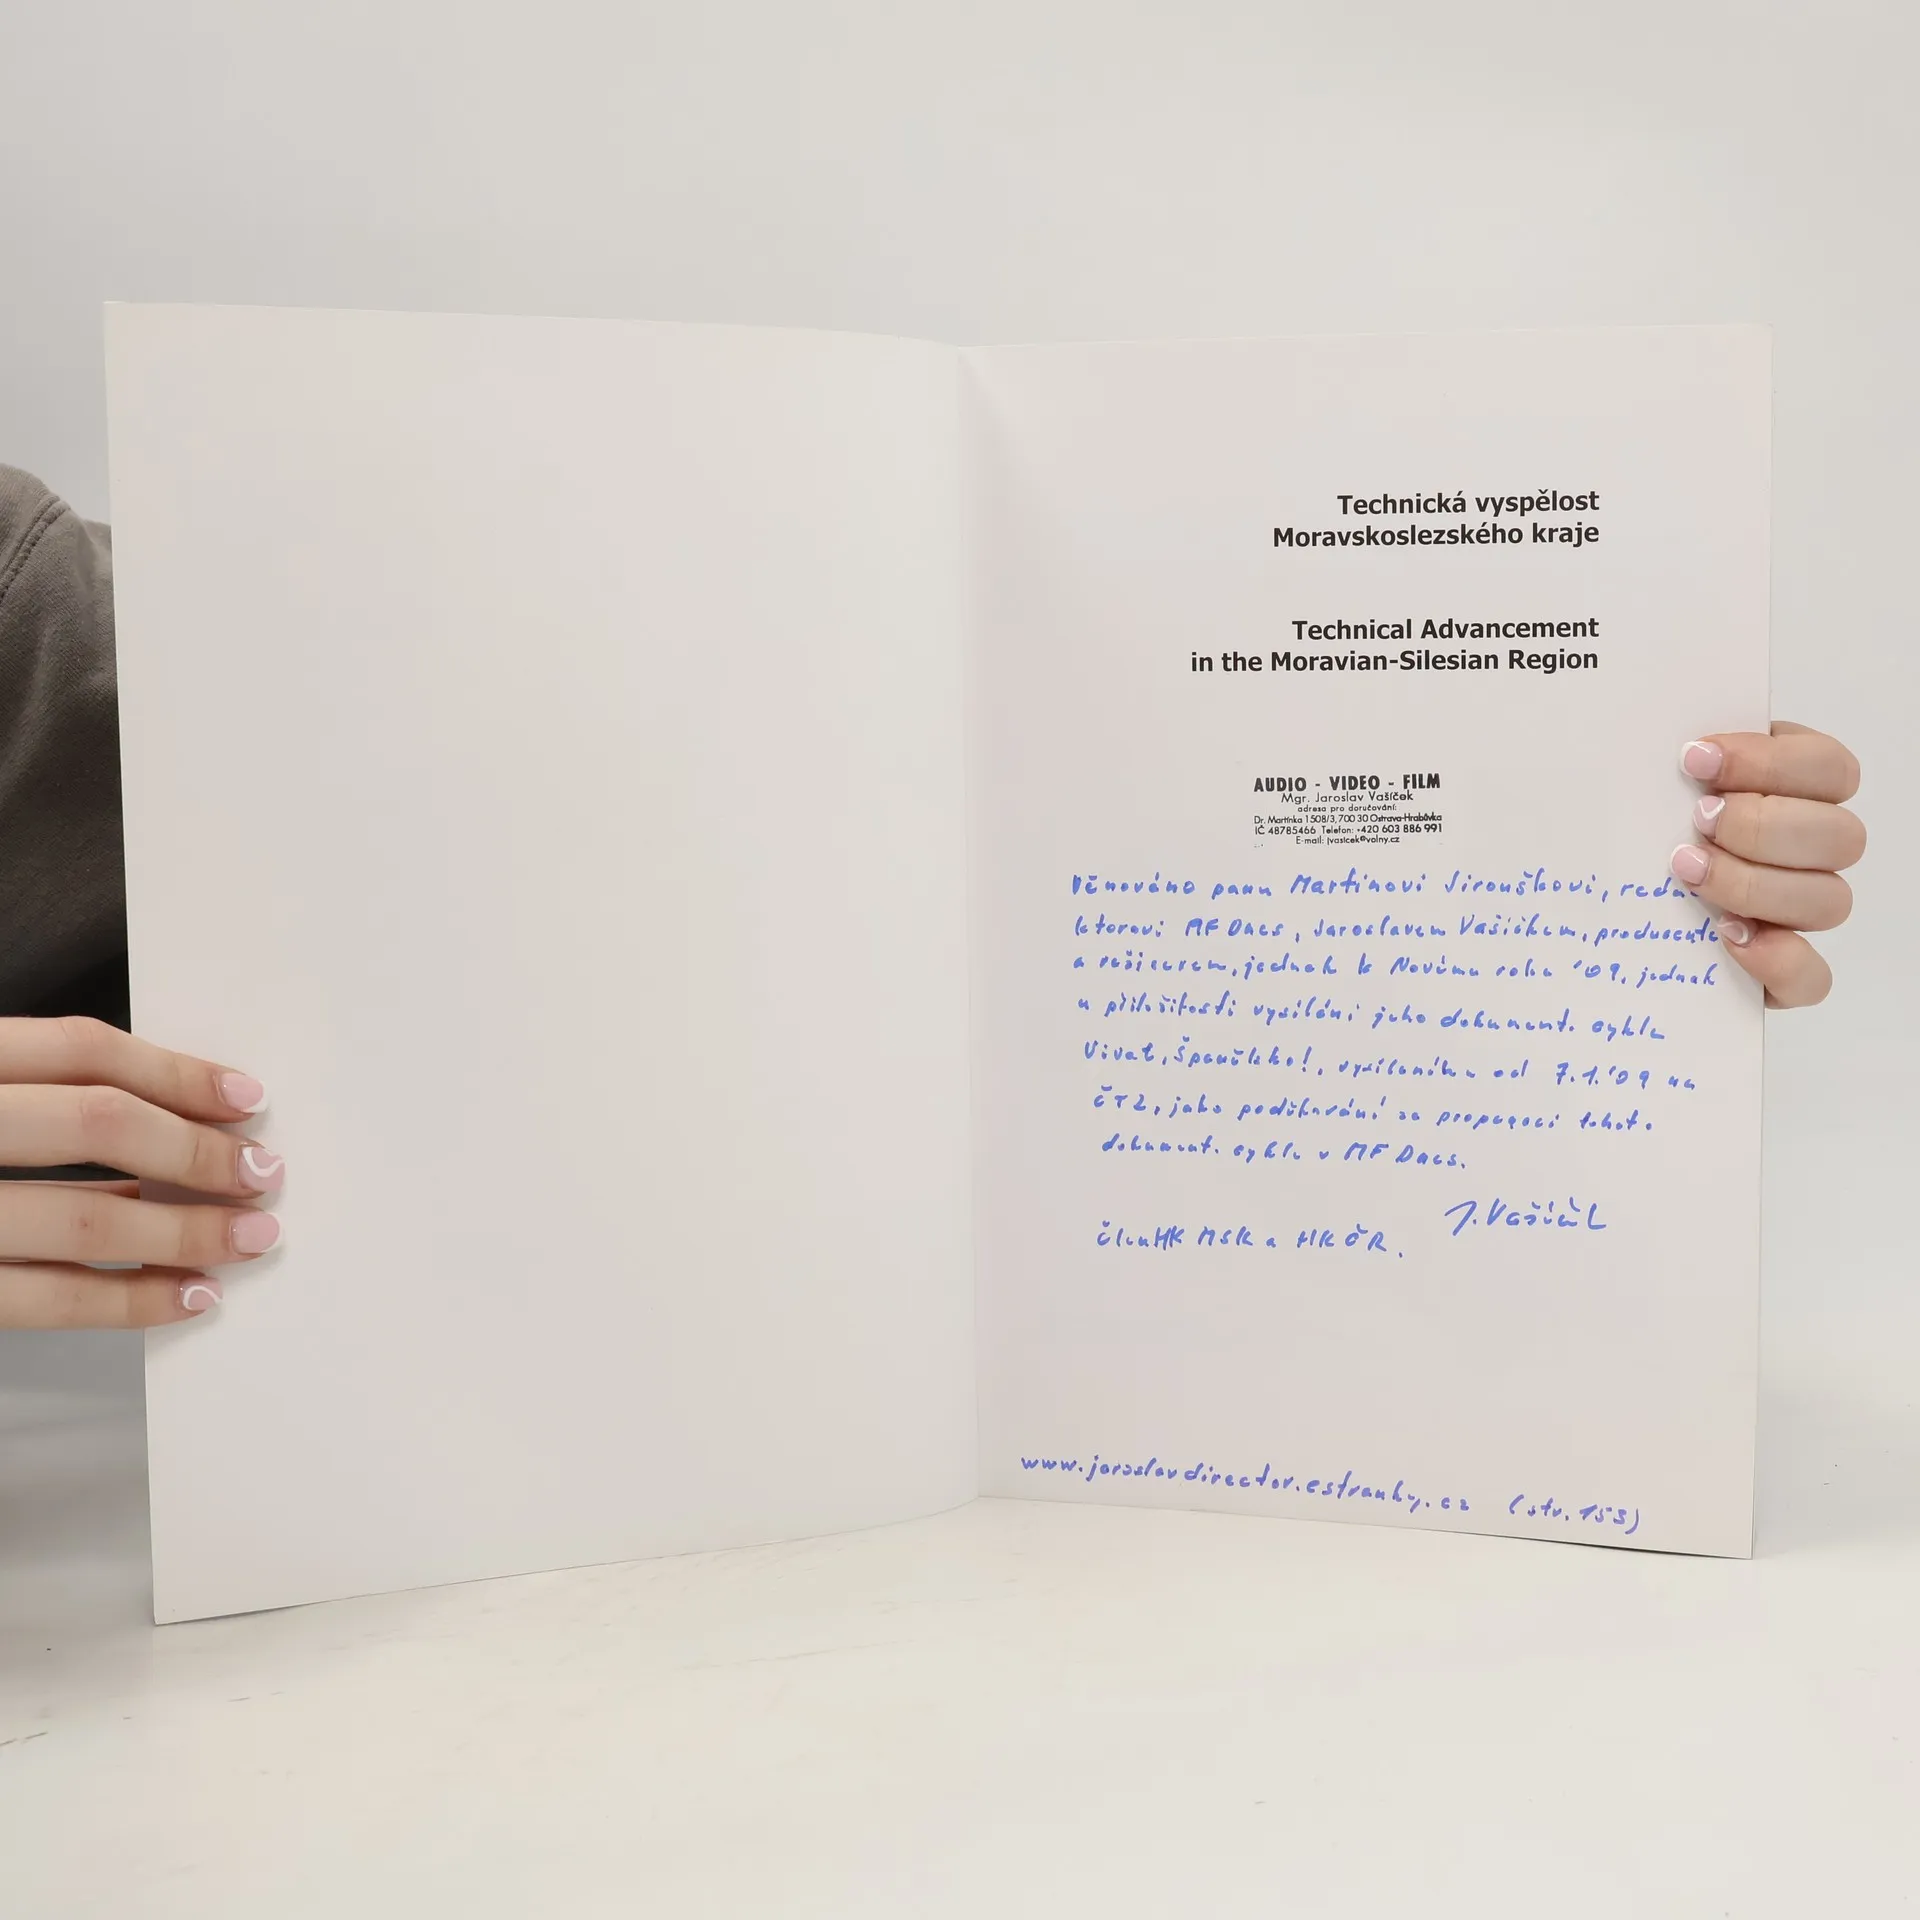 Technická vyspělost
Moravskoslezského kraje
Technical Advancement
in the Moravian-Silesian Region
AUDIO - VIDEO - FILM
Mgr. Jaroslav Vašíček
adresa pro doručování:
Dr. Martínka 1508/3, 700 30 Ostrava-Hrabůvka
IČ 48785466 Telefon: +420 603 886 991
E-mail: jvasicek@volny.cz
Věnováno panu Martinovi Jirouškovi, redak
ktorovi MF Dnes, Jaroslavem Vašíčkem, producente
a režisérem, jednak k Novému roku '09, jednak
u příležitosti vysílání jeho dokument. cyklu
Vivat, Španělsko!, vysílaného od 7.1.'09 na
ČT2, jako poděkování za propagaci tohoto
dokument. cyklu v MF Dnes.
J. Vašíček
Člen HK MSK a HK ČR.
www.jaroslavdirector.estranky.cz (str. 153)